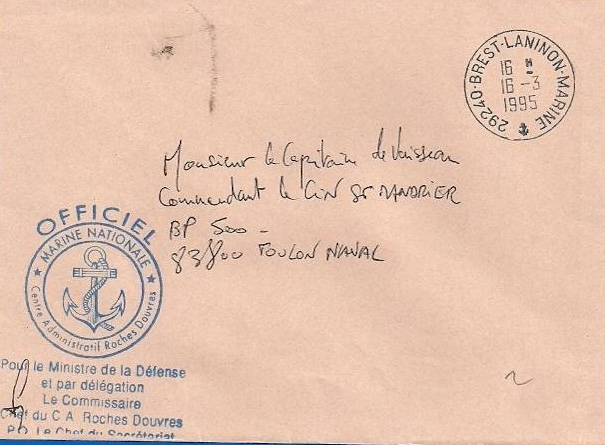 29240-BREST-LANINON-MARINE
16 H
16-3
1995
Monsieur le Capitaine de Vaisseau
Commandant le CIN ST MANDRIER
BP 500 -
83800 TOULON NAVAL
OFFICIEL
★ MARINE NATIONALE ★
Centre Administratif Roches Douvres
Pour le Ministre de la Défense
et par délégation
Le Commissaire
Chef du C A Roches Douvres
P.O. Le Chef du Secrétariat